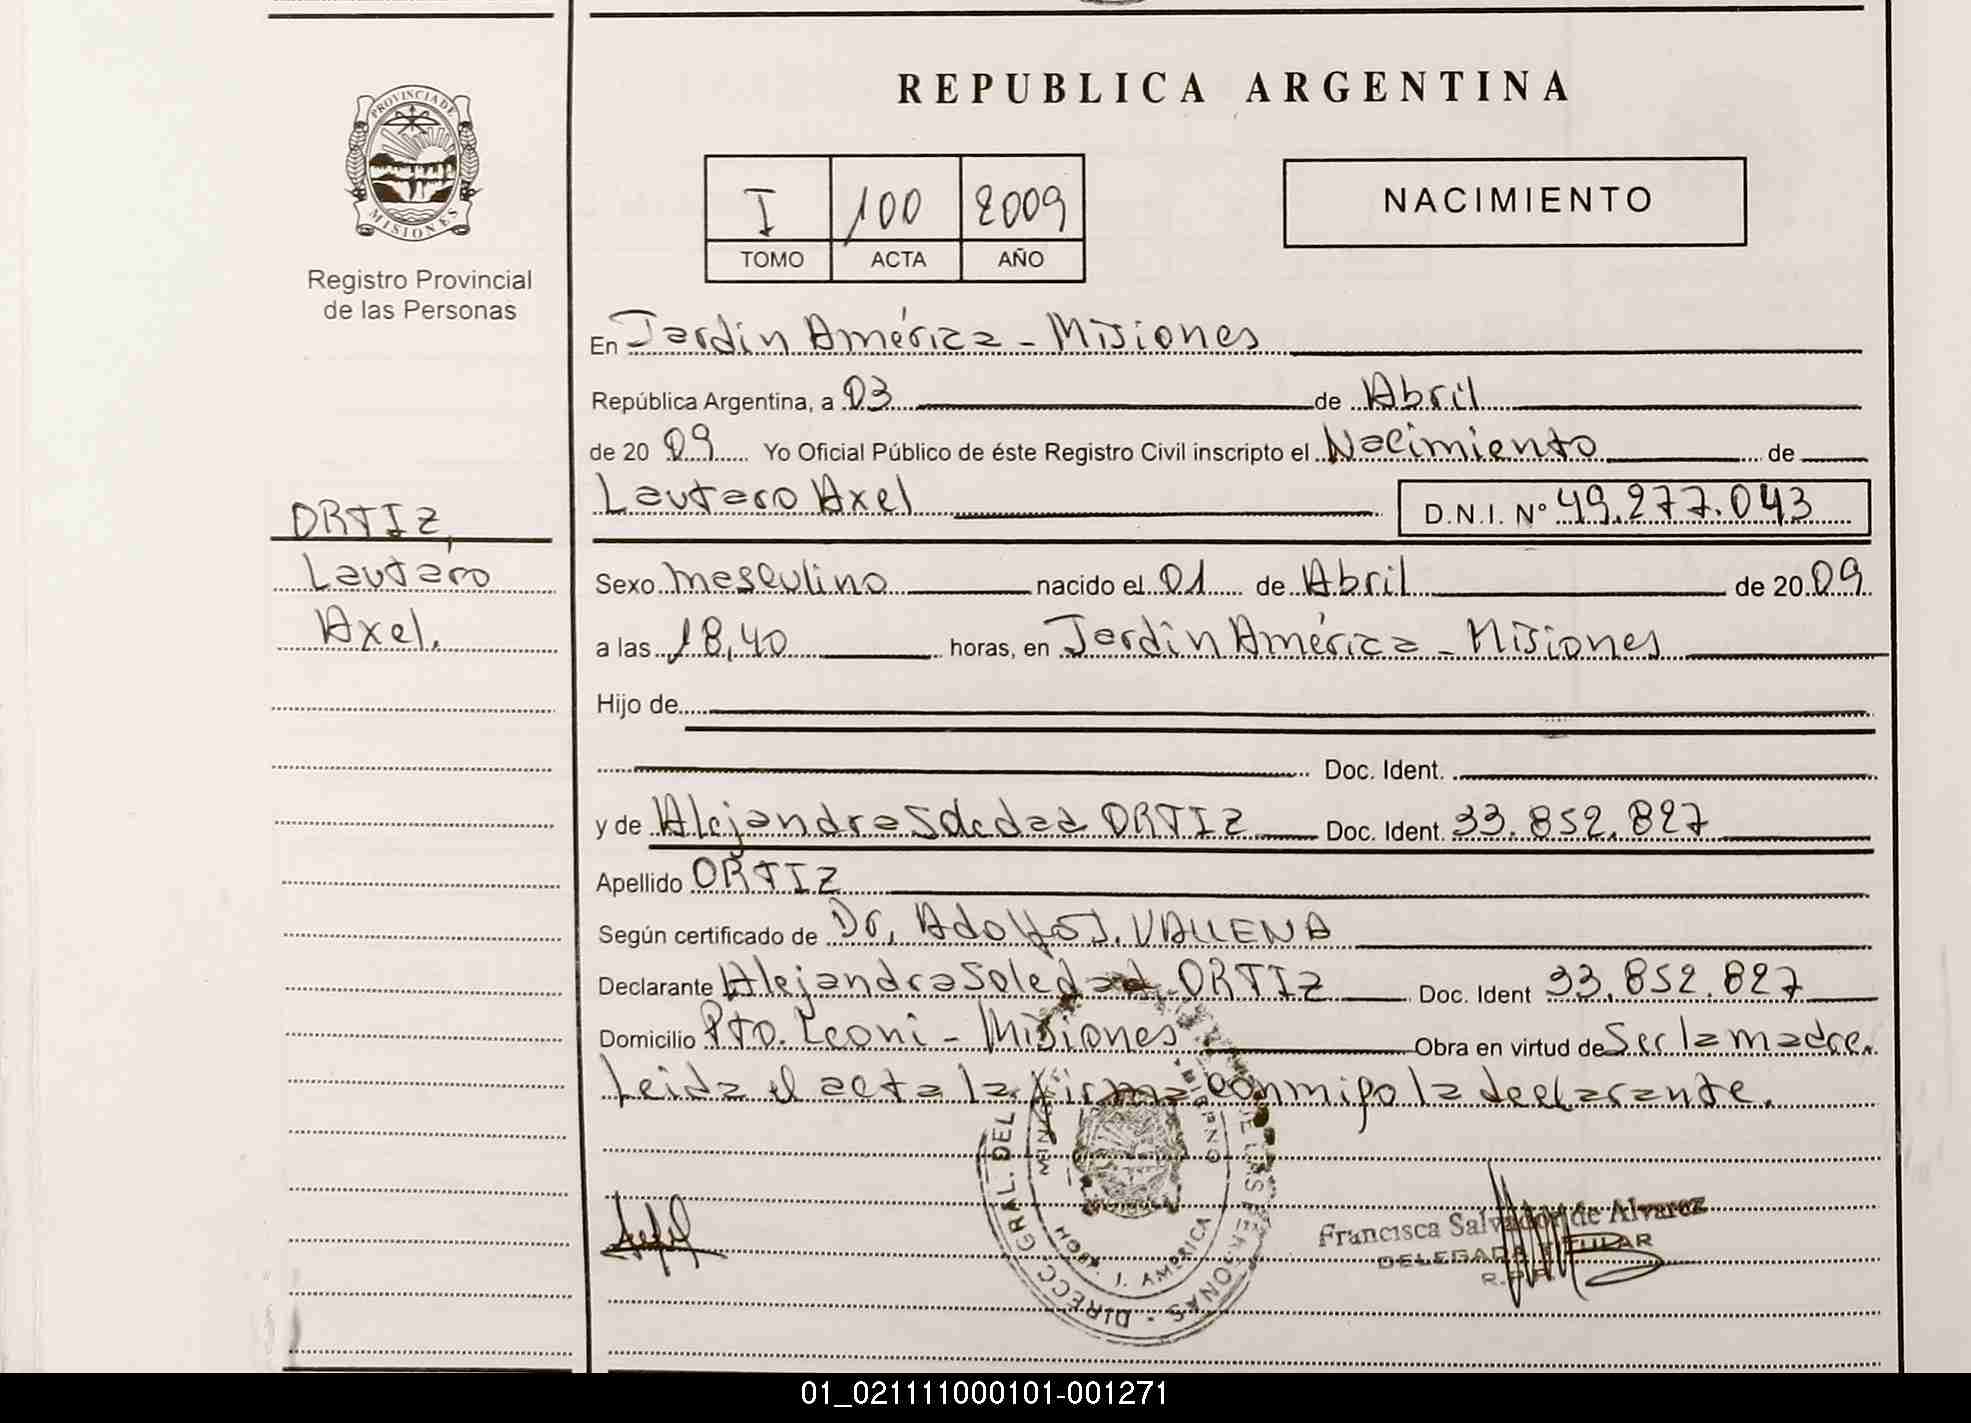 PROVINCIA DE
MISIONES
Registro Provincial
de las Personas
ORTIZ,
Lautaro
Axel.
REPUBLICA ARGENTINA
I 100 2009
TOMO ACTA AÑO
NACIMIENTO
En Jardin América - Misiones
República Argentina, a 03 de Abril
de 20 09 Yo Oficial Público de éste Registro Civil inscripto el Nacimiento de
Lautaro Axel D.N.I. N° 49.277.043
Sexo masculino nacido el 01 de Abril de 20 09
a las 18,40 horas, en Jardin América - Misiones
Hijo de
Doc. Ident.
y de Alejandra Soledad ORTIZ Doc. Ident. 33.852.827
Apellido ORTIZ
Según certificado de Dr. Adolfo J. VALLENA
Declarante Alejandra Soledad ORTIZ Doc. Ident 33.852.827
Domicilio Pto. Leoni - Misiones Obra en virtud de Ser la madre.
Leida el acta la firma conmigo la declarante.
DIRECC. GRAL. DEL
J. AMERICA
Francisca Salvador de Alvarez
DELEGADA TITULAR
R.P.P.
01_021111000101-001271